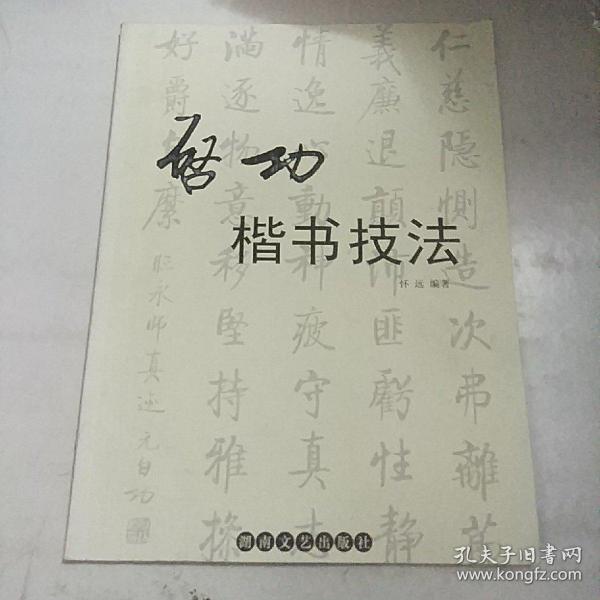 启功
楷书技法
怀远 编著
仁慈隐恻造次弗离节
義廉退顛沛匪虧性静
情逸心動神疲守真志
满逐物意移堅持雅操
好爵自縻
临永师真迹 元白功
湖南文艺出版社
孔夫子旧書网
www.kongfz.com